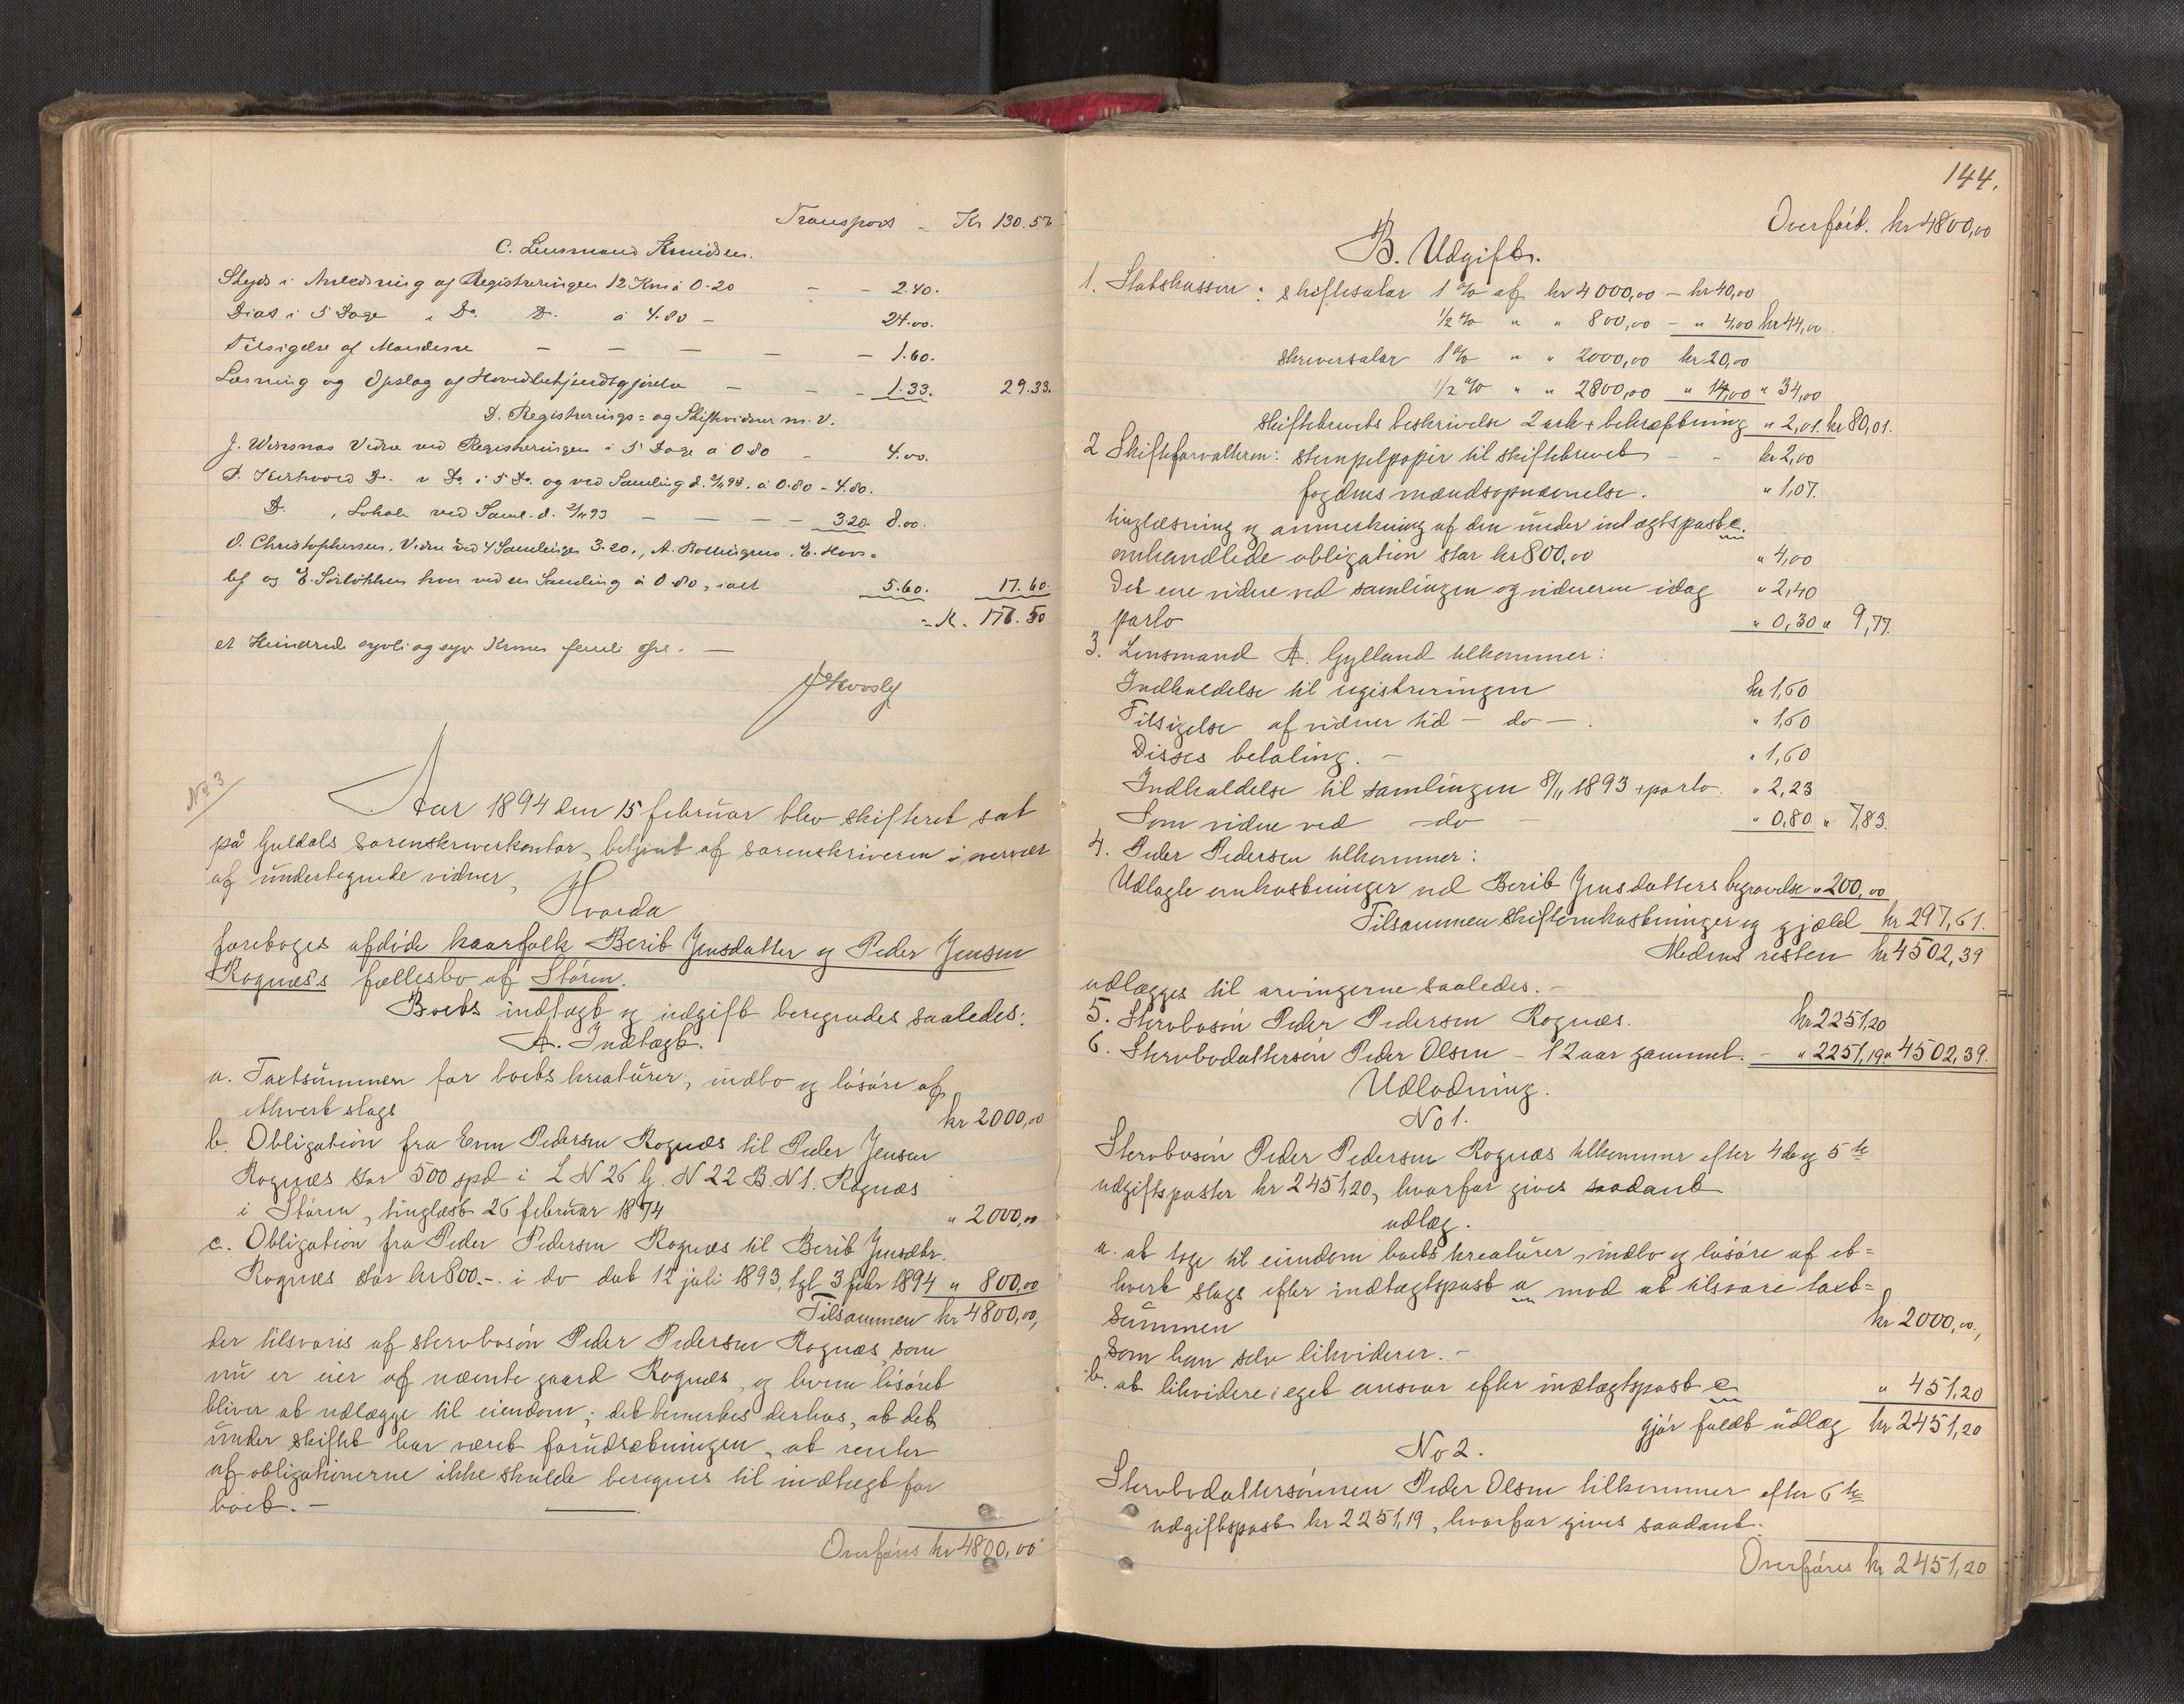 Transport - Kr 130.57
C. Lensmand Knudsen.
Skyds i Anledning af Registreringen 12 Km à 0.20 - - 2.40.
Diæt i 5 Dage i Do. Do. à 4.80 - 24.00.
Tilsigelse af Mændene - - - - - 1.60.
Læsning og Opslag af Hovedbekjendtgjørelse - - - 1.33. 29.33.
D. Registrerings- og Skiftevidner m. V.
J. Winsnæs Vidne ved Registreringen i 5 Dage à 0.80 - 4.00.
P. Kirkvold Do. v Do. i 5 Do. og ved Samling d. 2/11 93. à 0.80 - 4.80.
Do. , Lokale ved Saml. d. 2/11 93 - - - - 3.20. 8.00.
O. Christophersen, Vidne ved 4 Samlinger 3.20., A. , E. Hovs-
løf og E. hver ved en Samling à 0.80, ialt 5.60. 17.60.
= Kr. 177.50
et Hundrede syvti og syv Kroner femti Øre. -
No 3
Aar 1894 den 15 februar blev skifteret sat
på Guldals sorenskriverkontor, betjent af sorenskriveren i overvær
af undertegnede vidner,
Hvorda
foretoges afdøde kaarfolk Berit Jensdatter og Peder Jensen
Rognæs's fællesbo af Støren.
Boets indtægt og udgift beregnedes saaledes:
A. Indtægt.
a. Taxtsummen for boets kreaturer, indbo og løsøre af
ethvert slags kr 2000,00
b. Obligation fra Enen Pedersen Rognæs til Peder Jensen
Rognæs stor 500 spd i L N 26 G. N 22 B. N 1. Rognæs
i Støren, tinglæst 26 februar 1874 " 2000,00
c. Obligation fra Peder Pedersen Rognæs til Berit Jensdtr.
Rognæs stor kr 800.-. i do dat 12 juli 1893, tgl 3 febr 1894 " 800,00
Tilsammen kr 4800,00,
der tilsvares af stervbosøn Peder Pedersen Rognæs, som
nu er eier af nævnte gaard Rognæs, og hvem løsøret
bliver at udlægge til eiendom; det bemerkes derhos, at det
under skiftet har været forudsætningen, at renter
af obligationerne ikke skulde beregnes til indtægt for
boet. -
Overføres kr 4800,00
144.
Overført. kr 4800,00
B. Udgifter.
1. Statskassen: skiftesalær 1 % af kr 4000,00 - kr 40,00
1/2 % " " 800,00 - " 4,00 kr 44,00
skriversalær 1 % " " 2000,00 kr 20,00
1/2 % " " 2800,00 " 14,00 " 34,00
skiftebrevets beskrivelse 2 ark + bekræftning " 2,01. kr 80,01.
2 Skifteforvalteren: stempelpapir til skiftebrevet - - kr 2,00
fogdens mændsopnævnelse. " 1,07.
tinglæsning og anmerkning af den under indtægtspost c.
omhandlede obligation stor kr 800,00 " 4,00
Det ene vidne ved samlingen og vidnerne idag " 2,40
porto " 0,30 " 9,77.
3. Lensmand A. Gylland tilkommer:
Indkaldelse til registreringen kr 1,60
Tilsigelse af vidner tid - do - . " 1,60
Disses betaling. - " 1,60
Indkaldelse til samlingen 8/11 1893 + porto. " 2,23
Som vidne ved - do - " 0,80 " 7,83.
4. Peder Pedersen tilkommer:
Udlagte omkostninger ved Berit Jensdatters begravelse " 200,00
Tilsammen skifteomkostninger og gjæld kr 297,61.
Medens resten kr 4502,39
udlægges til arvingerne saaledes. -
5. Stervbosøn Peder Pedersen Rognæs. kr 2251,20
6. Stervbodattersøn Peder Olsen - 12 aar gammel. - " 2251,19 " 4502,39.
Udlodning.
No 1.
Stervbosøn Peder Pedersen Rognæs tilkommer efter 4de og 5te
udgiftsposter kr 2451,20, hvorfor gives saadant
udlæg.
a. at tage til eiendom boets kreaturer, indbo og løsøre af et-
hvert slags efter indtægtspost a mod at tilsvare taxt-
summen kr 2000,00.,
som han selv likviderer. -
b. at likvidere i eget ansvar efter indtægtspost c " 451,20
gjør fuldt udlæg kr 2451,20
No 2.
Stervbodattersønnen Peder Olsen tilkommer efter 6te
udgiftspost kr 2251,19, hvorfor gives saadant.
Overføres kr 2451,20